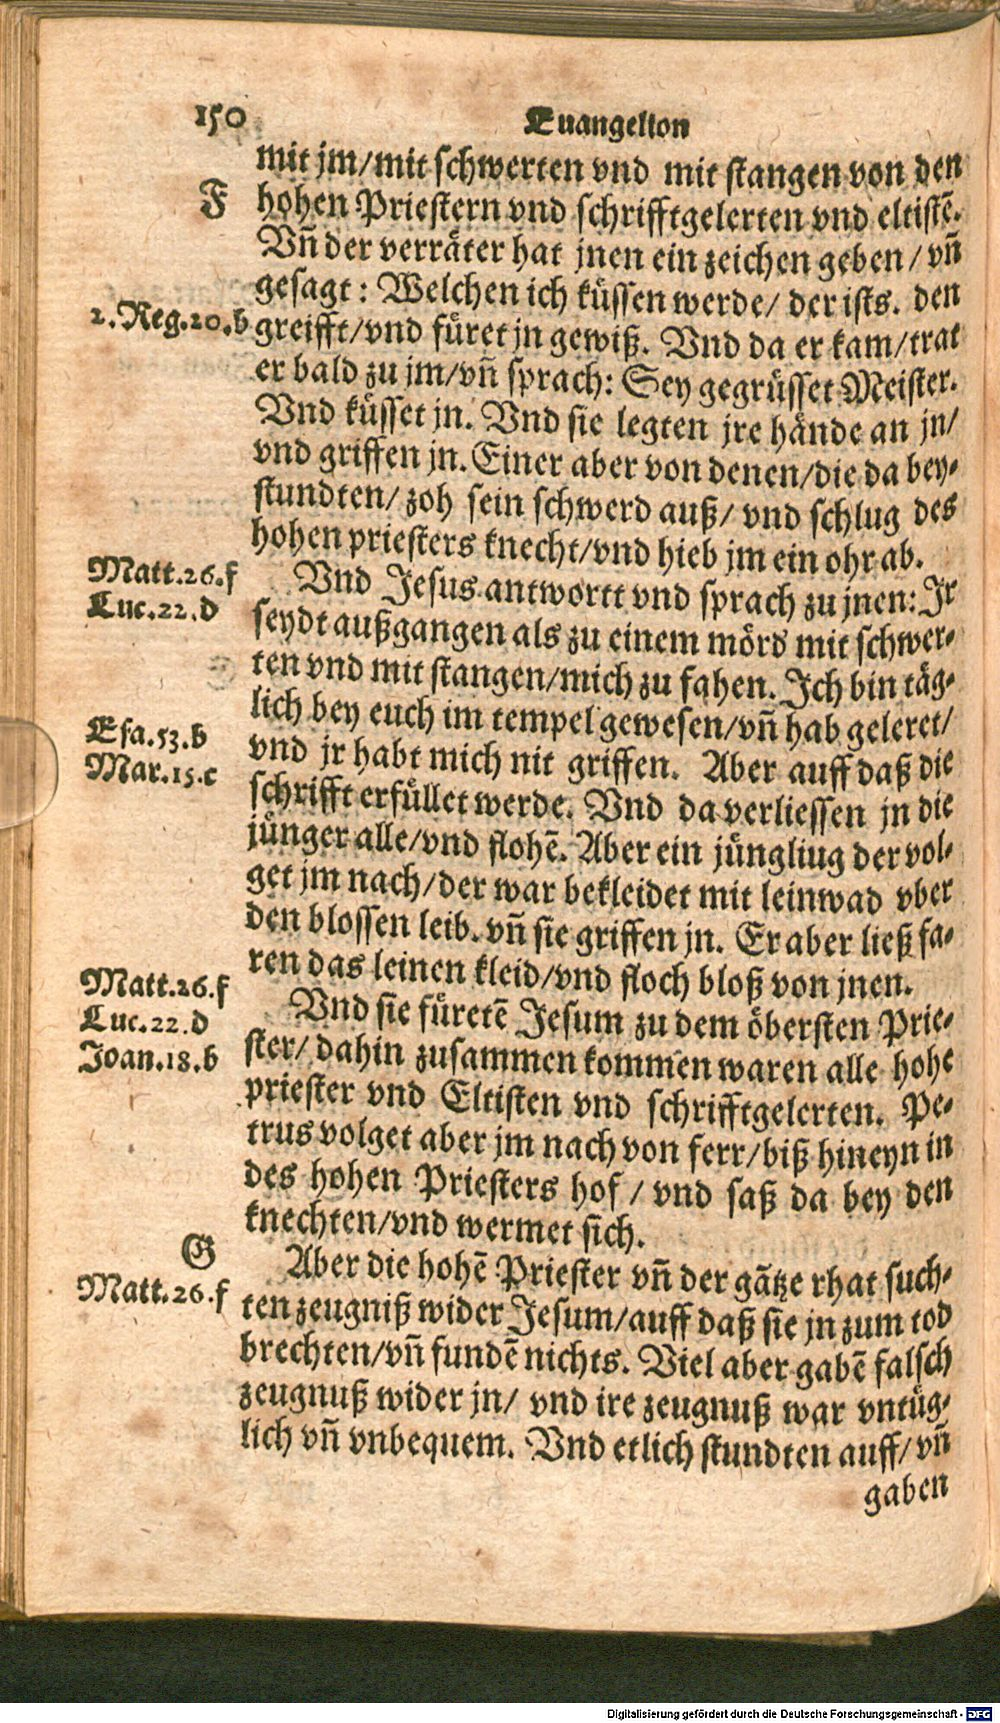 150
Euangelion
mit jm/mit schwerten vnd mit stangen von den
F
hohen Priestern vnd schrifftgelerten vnd eltistē.
Vñ der verräter hat jnen ein zeichen geben/ vñ
gesagt: Welchen ich küssen werde/ der ists. den
2.Reg.20.b
greifft/vnd füret jn gewiß. Vnd da er kam/trat
er bald zu jm/vñ sprach: Sey gegrüsset Meister.
Vnd küsset jn. Vnd sie legten jre hände an jn/
vnd griffen jn. Einer aber von denen/die da bey-
stundten/ zoh sein schwerd auß/ vnd schlug des
hohen priesters knecht/vnd hieb jm ein ohr ab.
Matt.26.f
Vnd Jesus antwortt vnd sprach zu jnen: Jr
Luc.22.d
seydt außgangen als zu einem mörd mit schwer-
ten vnd mit stangen/mich zu fahen. Ich bin täg-
lich bey euch im tempel gewesen/vñ hab geleret/
Esa.53.b
vnd jr habt mich nit griffen. Aber auff daß die
Mar.15.c
schrifft erfüllet werde. Vnd da verliessen jn die
jünger alle/vnd flohē. Aber ein jüngliug der vol-
get jm nach/der war bekleidet mit leinwad vber
den blossen leib. vñ sie griffen jn. Er aber ließ fa-
ren das leinen kleid/vnd floch bloß von jnen.
Matt.26.f
Vnd sie füretē Jesum zu dem öbersten Prie-
Luc.22.d
ster/ dahin zusammen kommen waren alle hohe
Joan.18.b
priester vnd Eltisten vnd schrifftgelerten. Pe-
trus volget aber jm nach von ferr/biß hineyn in
des hohen Priesters hof/ vnd saß da bey den
knechten/vnd wermet sich.
G
Aber die hohē Priester vñ der gātze rhat such-
Matt.26.f
ten zeugniß wider Jesum/auff daß sie jn zum tod
brechten/vñ fundē nichts. Viel aber gabē falsch
zeugnuß wider jn/ vnd ire zeugnuß war vntüg-
lich vñ vnbequem. Vnd etlich stundten auff/ vñ
gaben
Digitalisierung gefördert durch die Deutsche Forschungsgemeinschaft - DFG